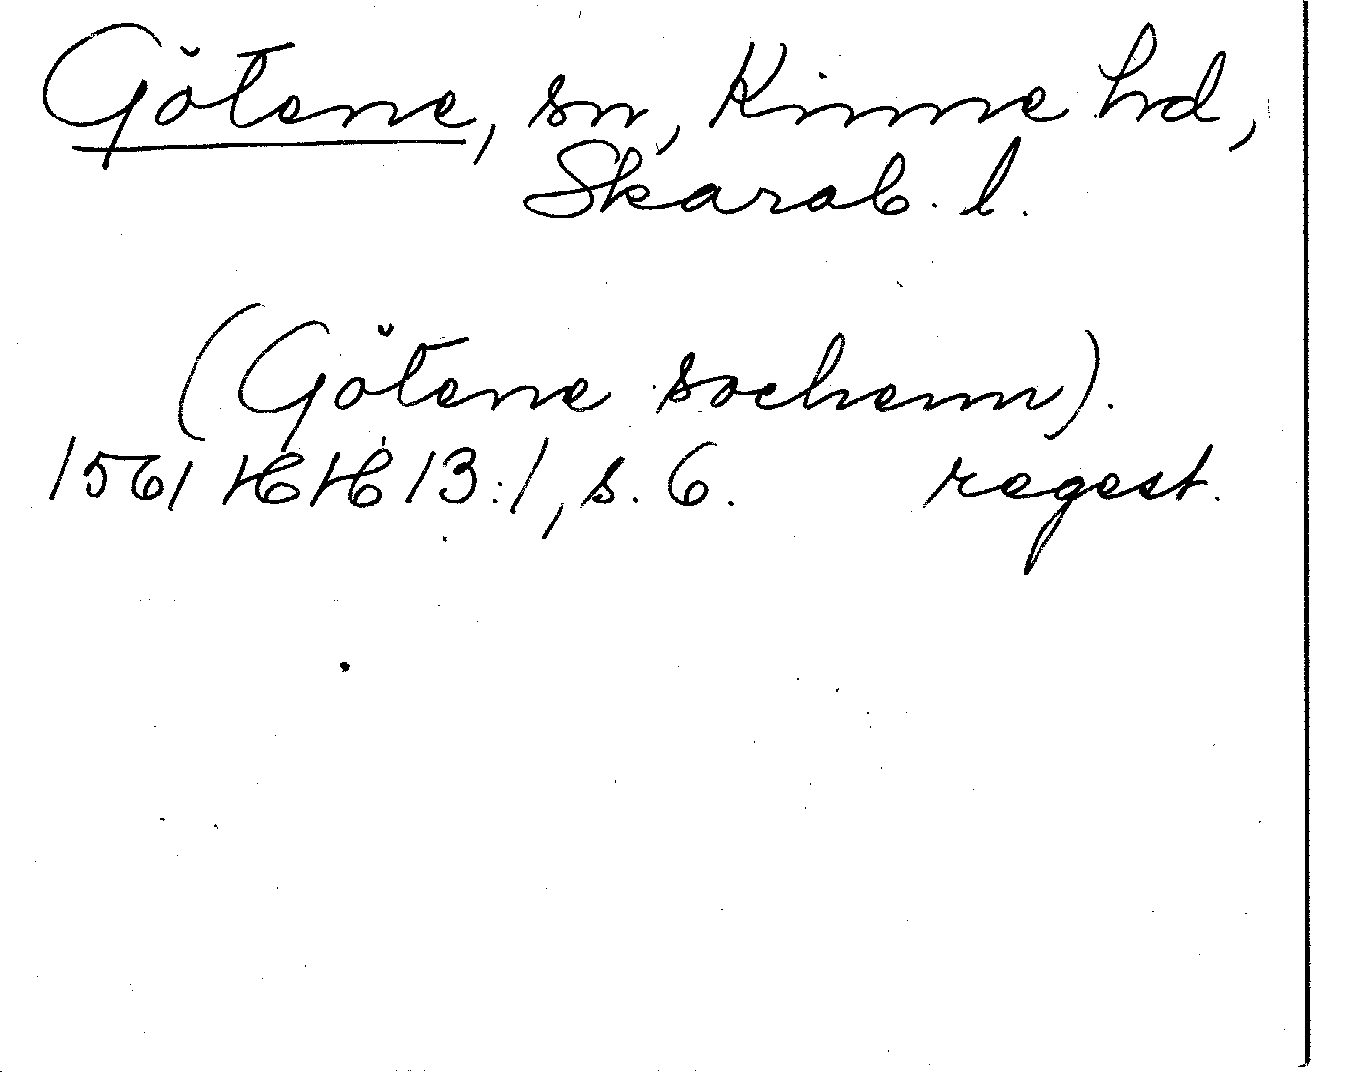 Götene, sn, Kinne hd,
Skarab. l.
(Götene sochenn).
1561 HH 13:1, s. 6. regest.